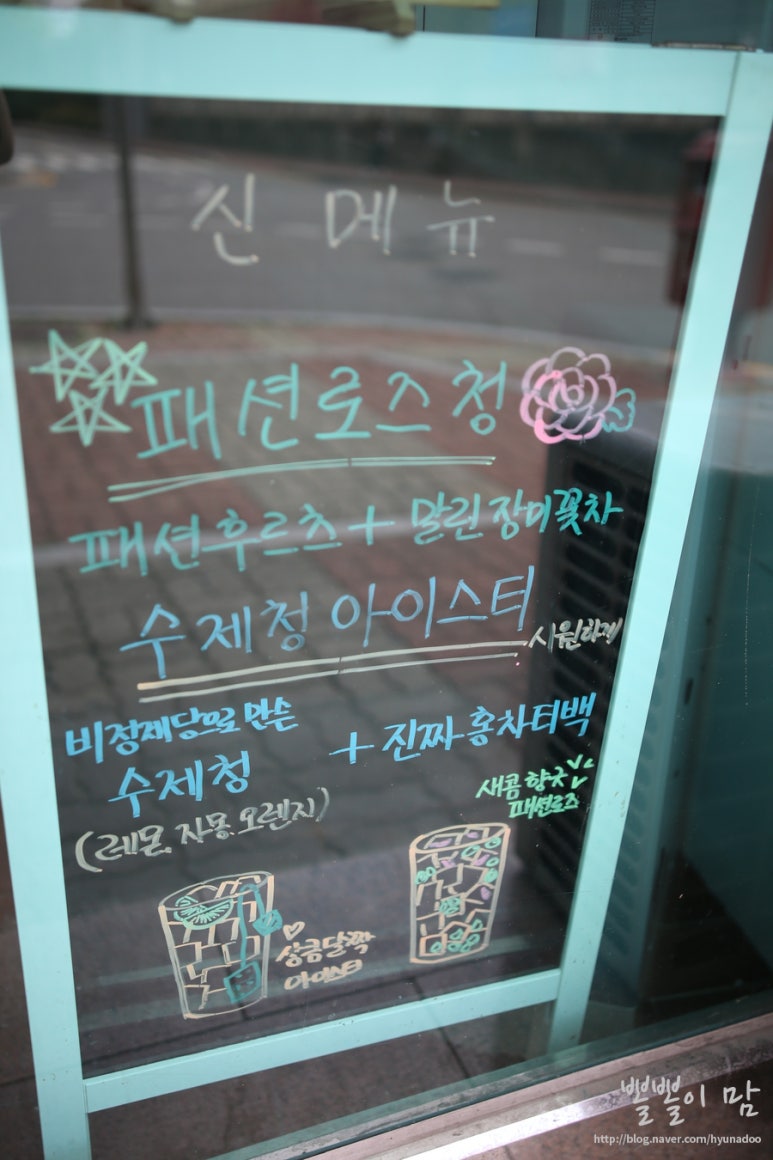 신 메뉴
패션로즈청
패션후르츠 + 말린장미꽃차
수제청 아이스티
시원하게
비정제당으로 만든
수제청
+ 진짜 홍차티백
(레몬, 자몽, 오렌지)
새콤 향긋
패션로즈
상큼달짝
아이스티
뽈뽈이 맘
http://blog.naver.com/hyunadoo